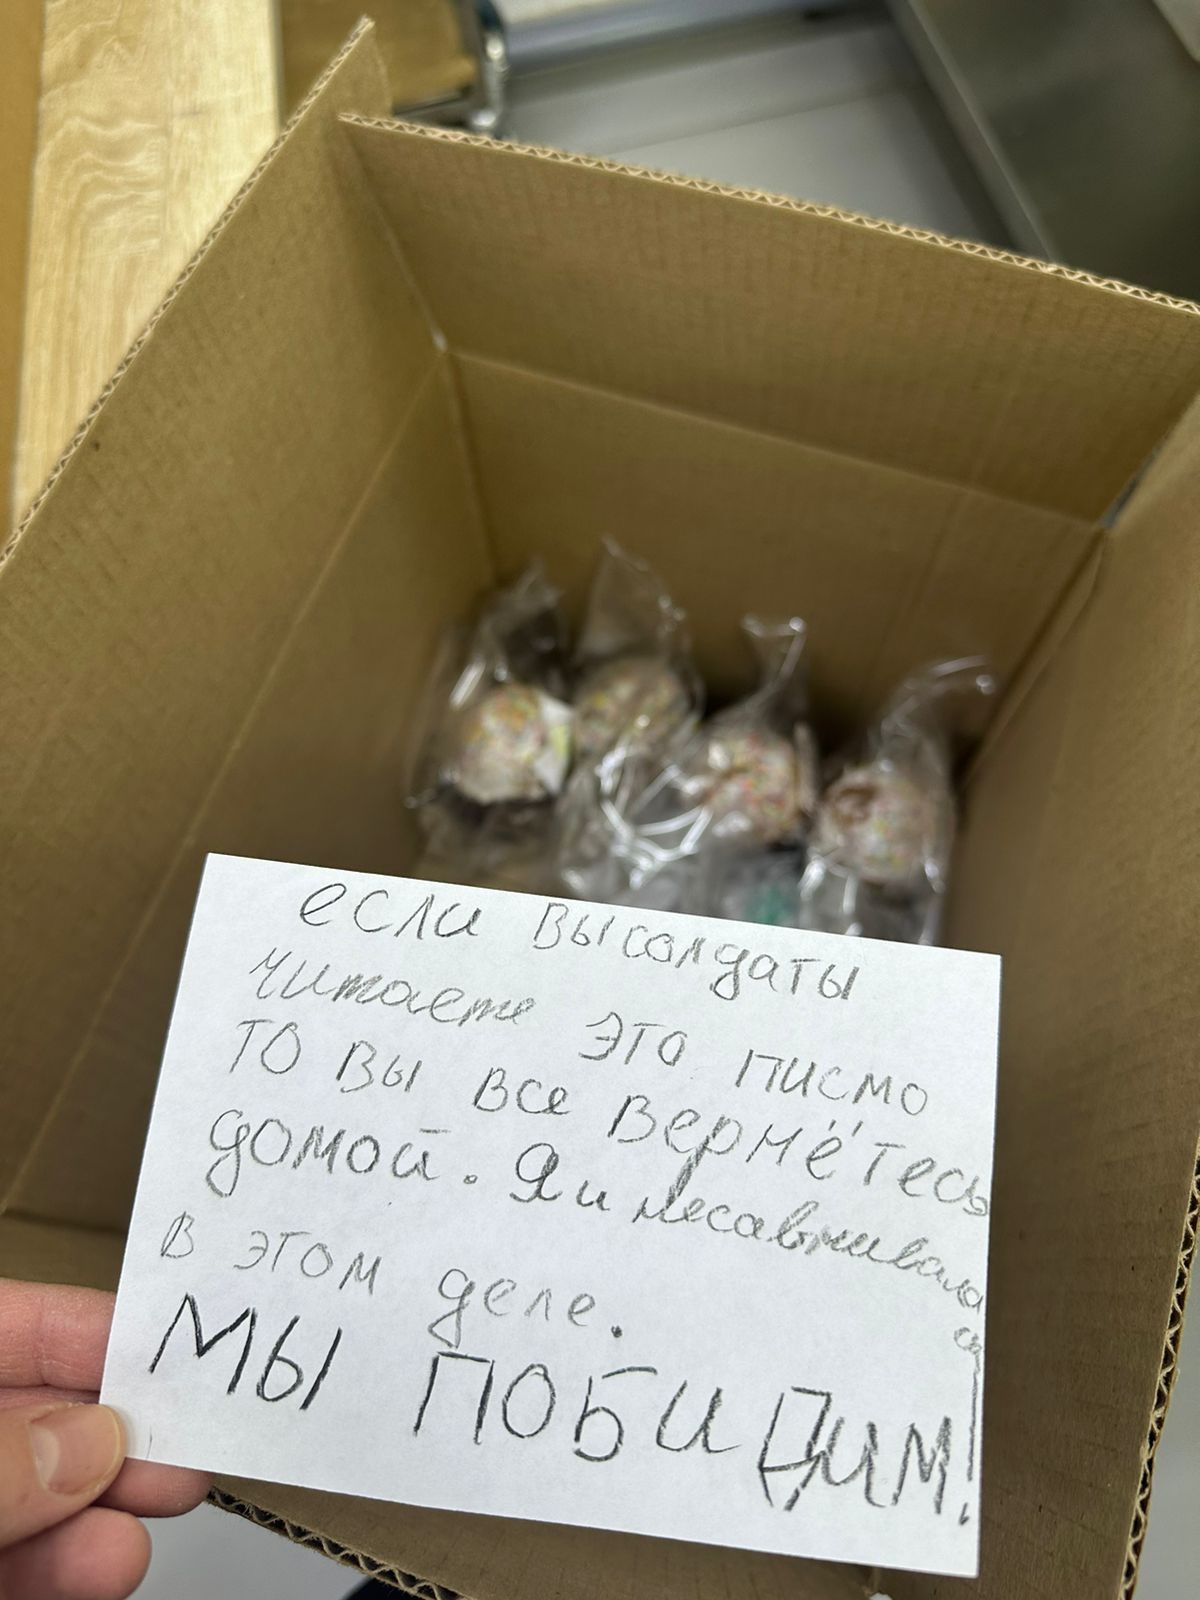 если вы солдаты
читаете это писмо
то вы все вернётесь
домой. Я и
в этом деле.
МЫ ПОБИДИМ!